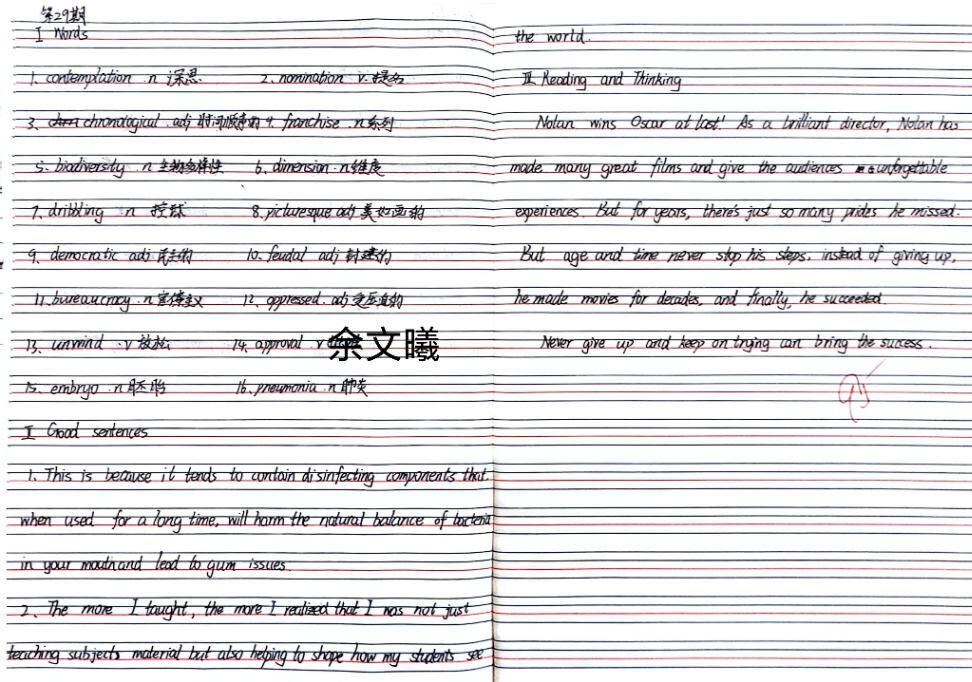 第29期
I Words
1. contemplation n 深思 2. nomination v. 提名
3. chronological adj 时间顺序的 4. franchise n 系列
5. biodiversity n 生物多样性 6. dimension n 维度
7. dribbling n 控球 8. picturesque adj 美如画的
9. democratic adj 民主的 10. feudal adj 封建的
11. bureaucracy n 官僚主义 12. oppressed adj 受压迫的
13. unwind v 放松 14. approval v
余文曦
15. embryo n 胚胎 16. pneumonia n 肺炎
II Good sentences
1. This is because it tends to contain disinfecting components that,
when used for a long time, will harm the natural balance of bacteria
in your mouth and lead to gum issues.
2. The more I taught, the more I realized that I was not just
teaching subjects material but also helping to shape how my students see
the world.
III Reading and Thinking
Nolan wins Oscar at last! As a brilliant director, Nolan has
made many great films and give the audiences unforgettable
experiences. But for years, there's just so many prides he missed.
But age and time never stop his steps. instead of giving up,
he made movies for decades, and finally, he succeeded.
Never give up and keep on trying can bring the success.